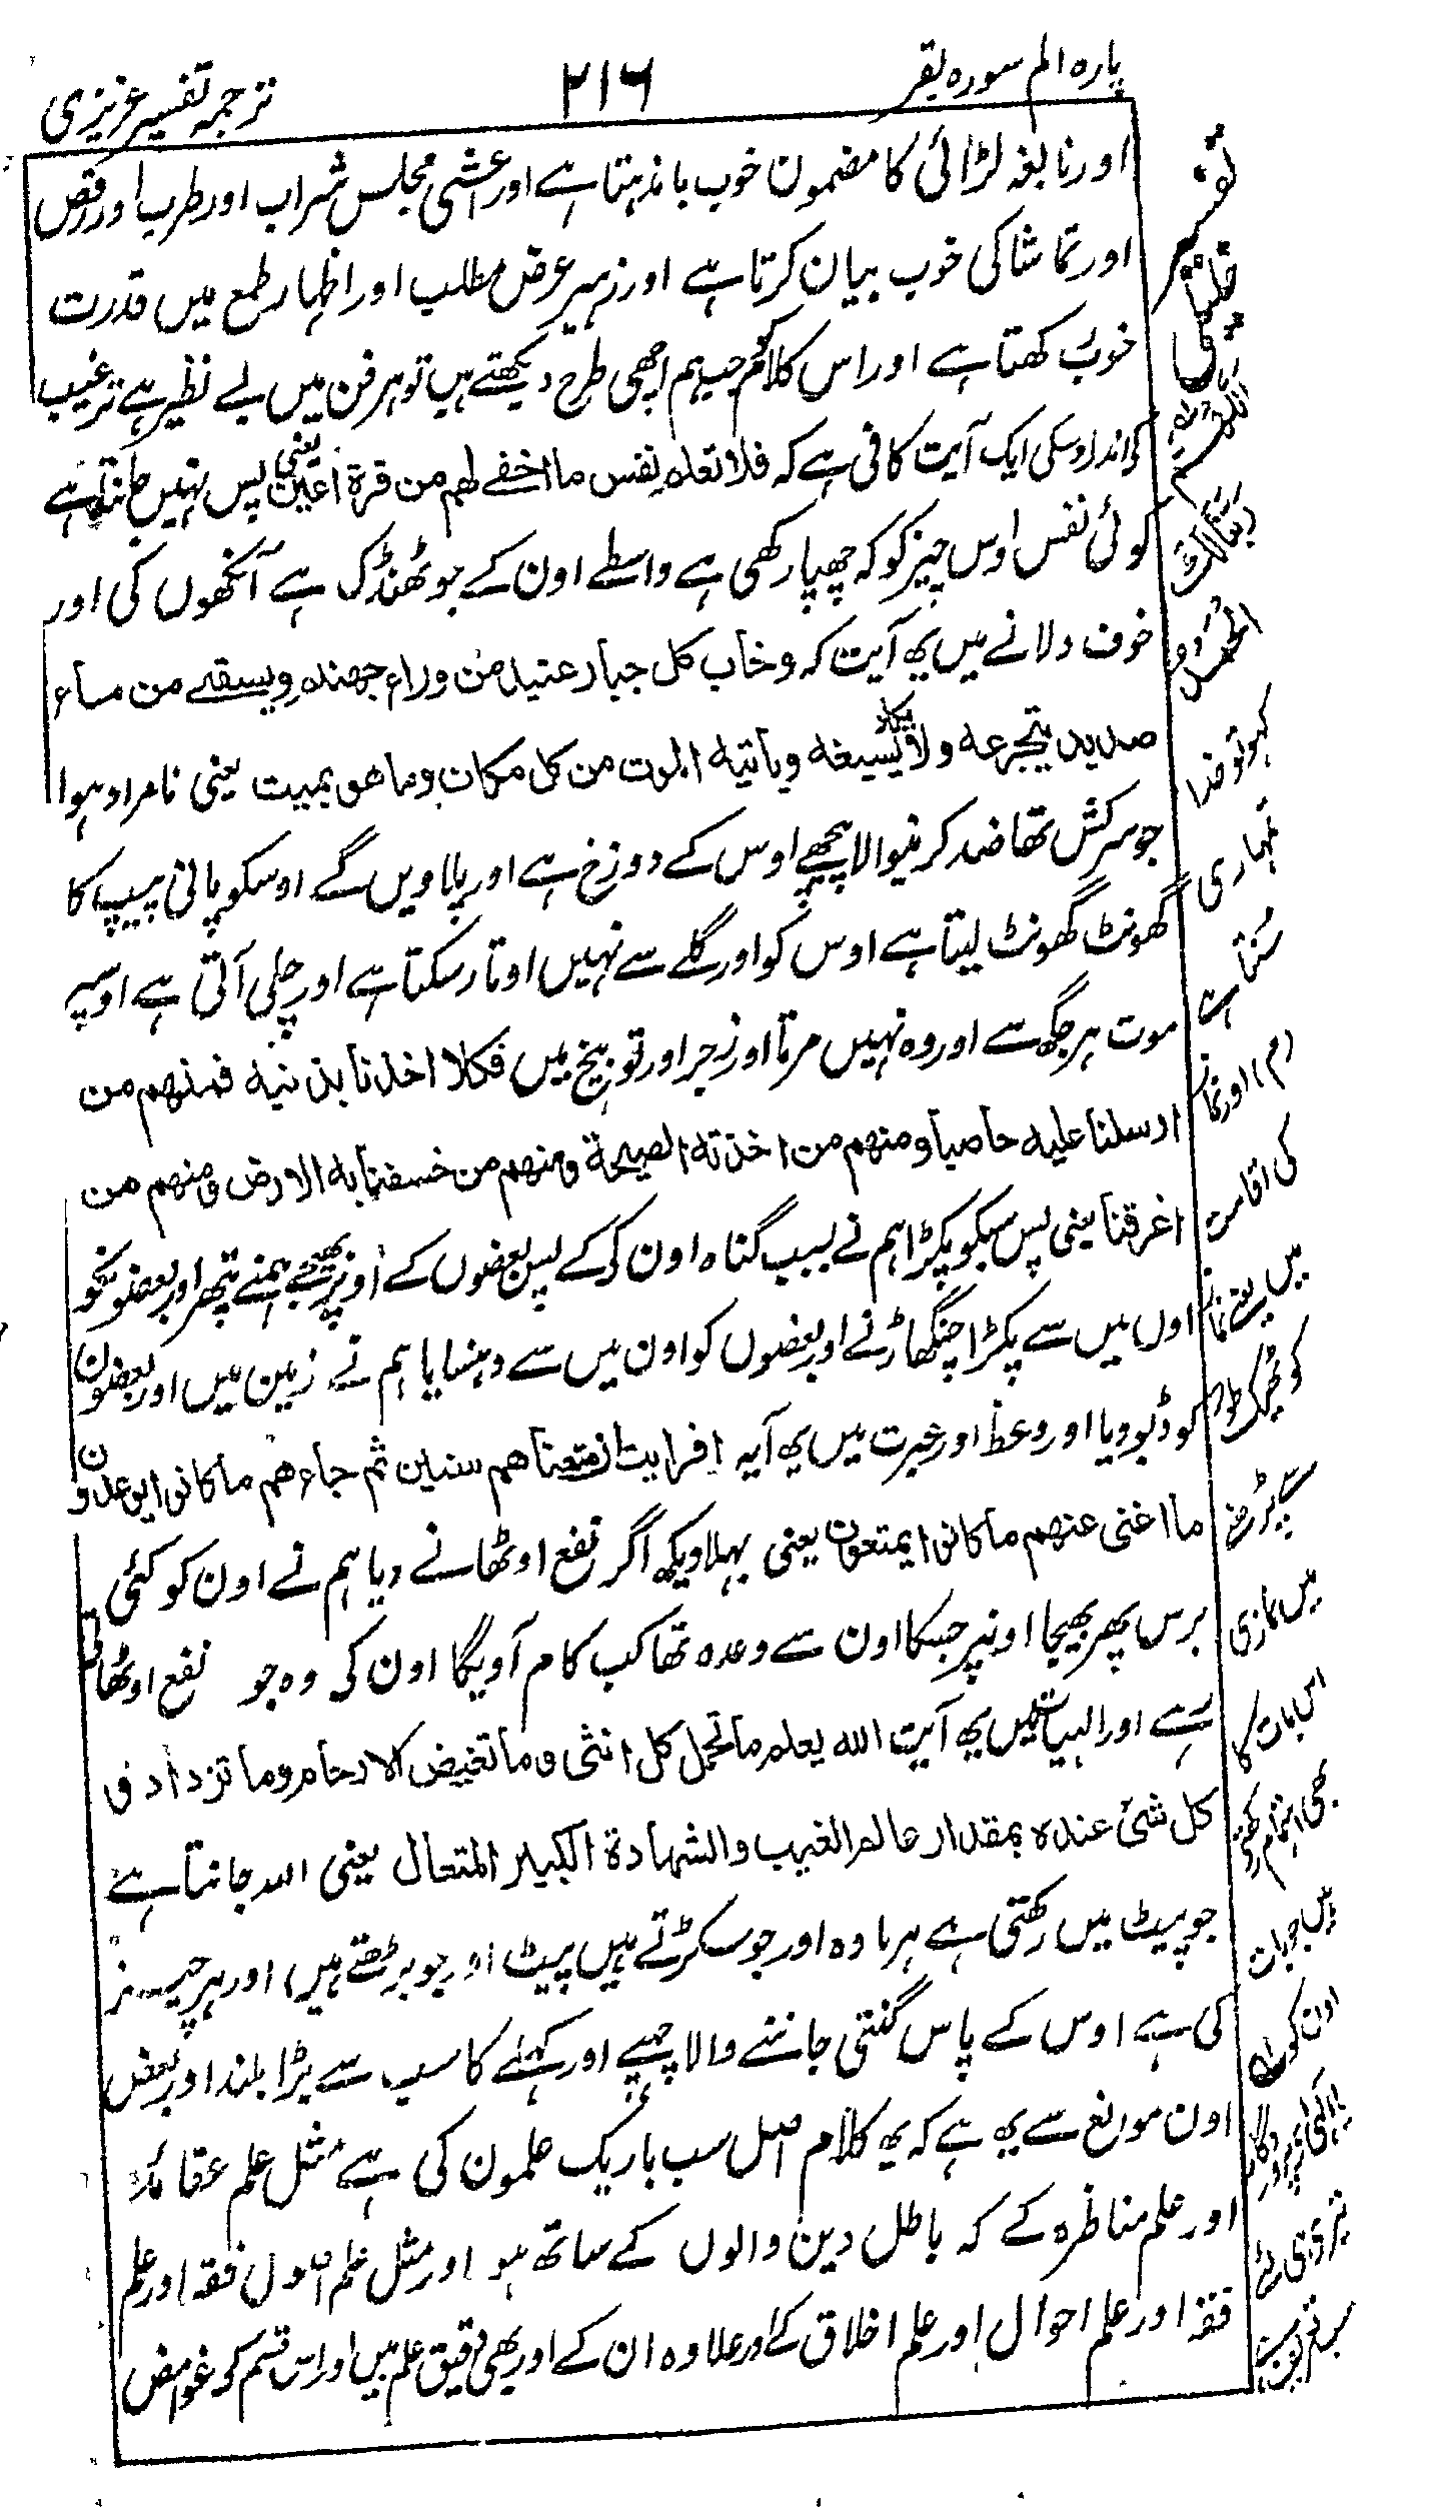 پارہ الم سورہ بقر
۲۱۶
ترجمہ تفسیر عزیزی
اور نابغہ لڑائی کا مضمون خوب باندہتا ہے اور اعشی مجلس شراب اور طرب اور رقص
اور تماشا کی خوب بیان کرتا ہے اور زہیر عرض مطلب اور اظہار طمع میں قدرت
خوب رکھتا ہے اور اس کلام کو جب ہم اچھی طرح دیکھتے ہیں تو ہر فن میں بے نظیر ہے ترغیب
کے اندر اوسکی ایک آیت کافی ہے کہ فلا تعلم نفس ما اخفے لہم من قرۃ اعین یعنی پس نہیں جانتا ہے
کوئی نفس اوس چیز کو کہ چھپا رکھی ہے واسطے اون کے جو ٹھنڈک ہے آنکھوں کی اور
خوف دلانے میں یہ آیت کہ وخاب کل جبار عنید من وراء جہنم ویسقے من ماء
صدید یتجرعہ ولا یکاد یسیغہ ویاتیہ الموت من کل مکان وما ھو بمیت یعنی نامراد ہوا
جو سرکش تھا ضد کرنیوالا پیچھے اوس کے دوزخ ہے اور پلاویں گے اوسکو پانی پیپ کا
گھونٹ گھونٹ لیتا ہے اوس کو اور گلے سے نہیں اوتار سکتا ہے اور چلی آتی ہے اوسپر
موت ہر جگہ سے اور وہ نہیں مرتا اور زجر اور توبیخ میں فکلا اخذنا بذنبہ فمنہم من
ارسلنا علیہ حاصبا ومنہم من اخذتہ الصیحۃ ومنہم من خسفنا بہ الارض ومنہم من
اغرقنا یعنی پس سبکو پکڑا ہم نے بسبب گناہ اون کے کے پس بعضوں کے اوپر بھیجے ہمنے پتھر اور بعضونکو
اون میں سے پکڑا چنگھاڑ نے اور بعضوں کو اون میں سے دہنسایا ہم نے زمین میں اور بعضون
کو ڈبو دیا اور وعظ اور عبرت میں یہ آیہ افرایت ان متعناھم سنین ثم جاءھم ما کانوا یوعدون
ما اغنی عنہم ما کانوا یمتعون یعنی بہلا دیکھ اگر نفع اوٹھانے دیا ہم نے اون کو کئی
برس پھر بھیجا اونپر جسکا اون سے وعدہ تھا کب کام آویگا اون کی وہ جو نفع اوٹھاتے
رہے اور الہیات میں یہ آیت اللہ یعلم ما تحمل کل انثی وما تغیض الارحام وما تزداد و
کل شئ عندہ بمقدار عالم الغیب والشہادۃ الکبیر المتعال یعنی اللہ جانتا ہے
جو پیٹ میں رکھتی ہے ہر مادہ اور جو سکڑتے ہیں پیٹ اور جو بڑھتے ہیں اور ہر چیز
کی ہے اوس کے پاس گنتی جاننے والا چھپے اور کھلے کا سب سے بڑا بلند اور بعض
اون موانع سے یہ ہے کہ یہ کلام اصل سب باریک علمون کی ہے مثل علم عقائد
اور علم مناظرہ کے کہ باطل دین والوں کے ساتھ ہو اور مثل علم اصول فقہ اور علم
فقہ اور علم احوال اور علم اخلاق کے اور علاوہ ان کے اور بھی دقیق علم ہیں اور اس قسم کو غوامض
تفسیر
تمہاری
سنتا ہے
کی اقامت
میں نمازی
اس بات کا
اون کو